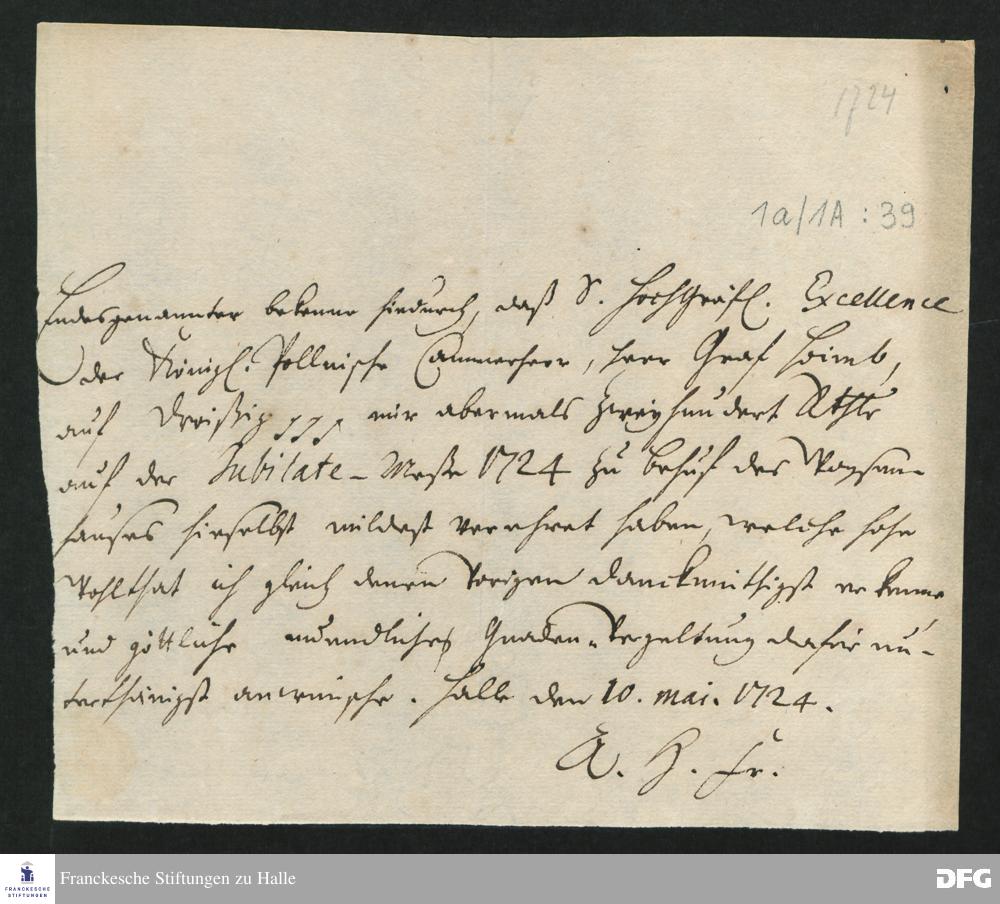 1724
1a/1A : 39
Endesgenannter bekenne hiedurch, daß S. hochGräfl. Excellence
der Königl. Pollnische Cammerherr, Herr Graf Hoimb,
auf mir abermals Zweyhundert Rthlr
auf der Jubilate-Meße 1724 zu behuf des Waysen-
hauses hieselbst mildest verehret haben, welche hohe
Wohlthat ich gleich denen vorigen danckmüthigst erkenne
und göttliche unendliche Gnaden-Vergeltung dafür un-
terthänigst anwünsche. Halle den 10. mai. 1724.
A. H. Fr.
FRANCKESCHE STIFTUNGEN
Franckesche Stiftungen zu Halle
DFG